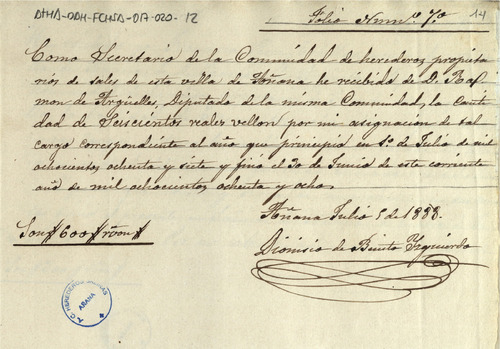 DAHA-DDH-FCHSA-017-020-12
Folio Num.º 7.º
14
Como Secretario de la Comunidad de herederos propieta
rios de sales de esta villa de Añana he recibido de D. Ra
mon de Argüelles, Diputado de la misma Comunidad, la canti
dad de Seiscientos reales vellon por mi asignacion de tal
cargo correspondiente al año que principió en 1.º de Julio de mil
ochocientos ochenta y siete y finó el 30 de Junio de este corriente
año de mil ochocientos ochenta y ocho.
Añana Julio 5 de 1888.
Son # 600 # rvon #
Dionisio de Benito Yzquierdo
HEREDEROS
AÑANA